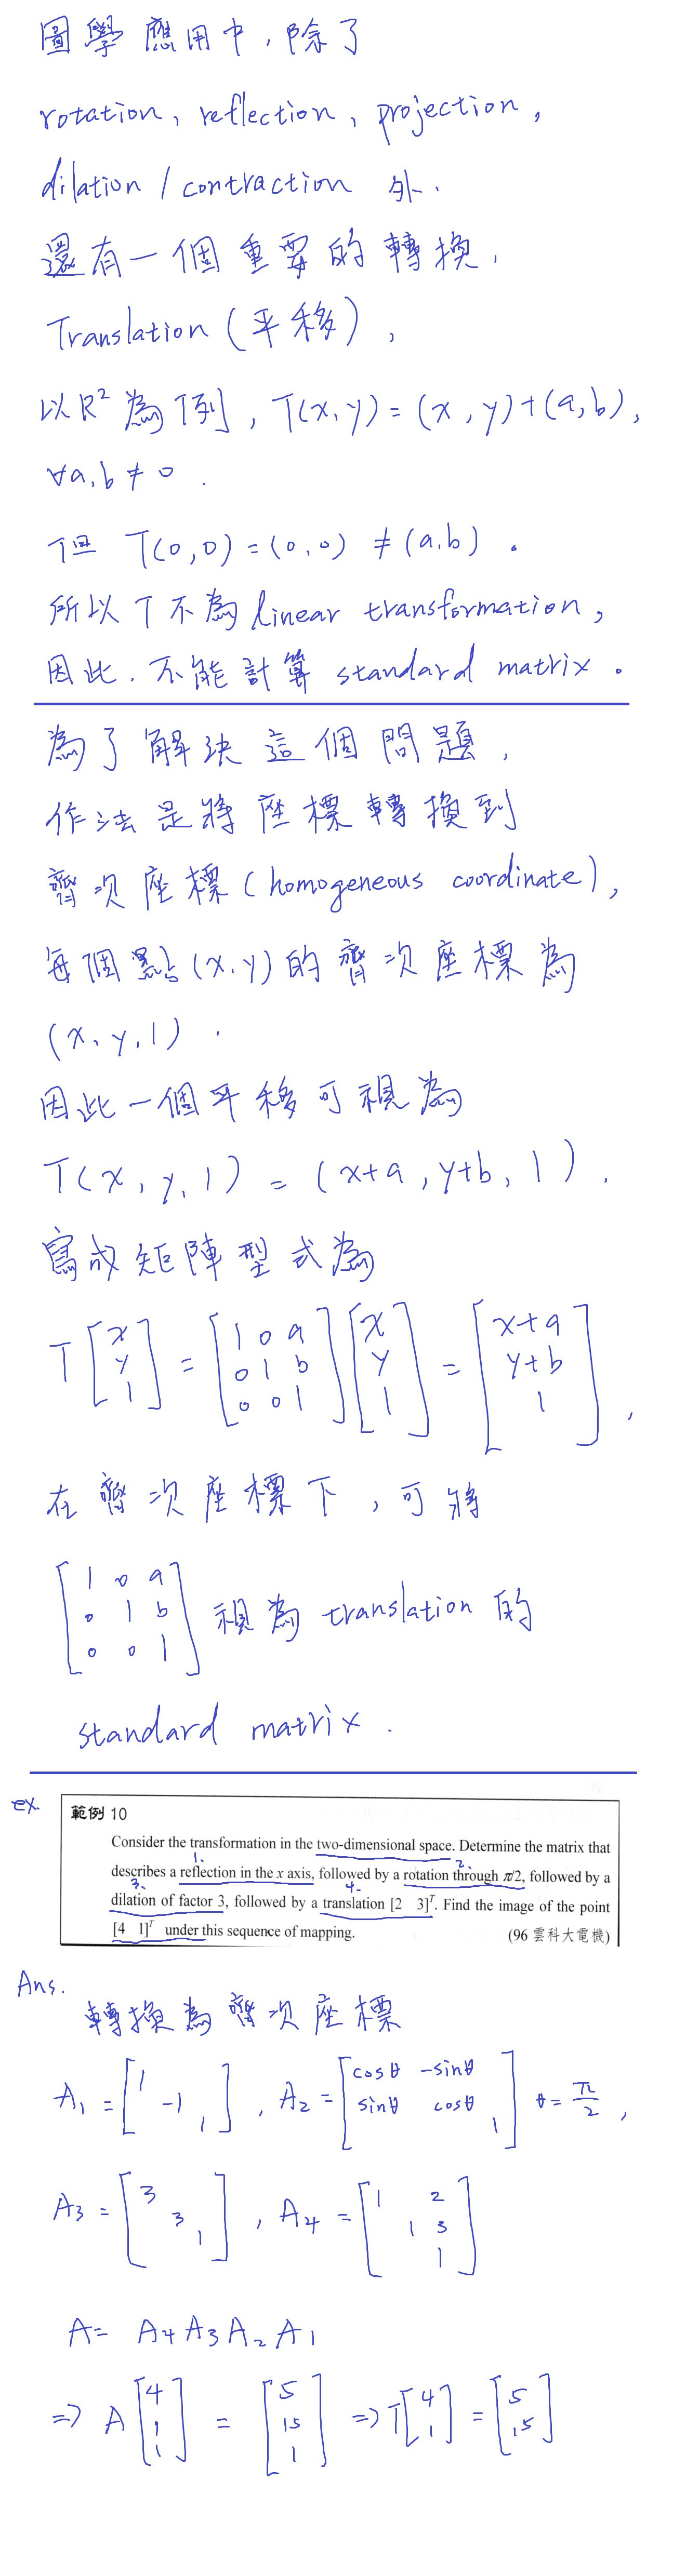 圖學應用中,除了
rotation、reflection、projection,
dilation / contraction 外,
還有一個重要的轉換,
Translation (平移),
以R²為例, T(x,y) = (x,y)+(a,b),
∀a,b ≠ 0.
但 T(0,0) = (0,0) ≠ (a,b)。
所以T不為linear transformation,
因此,不能計算 standard matrix。
為了解決這個問題,
作法是將座標轉換到
齊次座標(homogeneous coordinate),
每個點(x,y)的齊次座標為
(x,y,1).
因此一個平移可視為
T(x,y,1) = (x+a,y+b,1).
寫成矩陣型式為
T [x y 1] = [1 0 a 0 1 b 0 0 1] [x y 1] = [x+a y+b 1],
在齊次座標下,可將
[1 0 a 0 1 b 0 0 1] 視為 translation 的
standard matrix.
ex.
範例 10
Consider the transformation in the two-dimensional space. Determine the matrix that
1. 2.
describes a reflection in the x axis, followed by a rotation through π/2, followed by a
3. 4.
dilation of factor 3, followed by a translation [2 3]ᵀ. Find the image of the point
[4 1]ᵀ under this sequence of mapping. (96 雲科大電機)
Ans.
轉換為齊次座標
A₁ = [1 -1 1], A₂ = [cosθ -sinθ sinθ cosθ 1] θ = π/2,
A₃ = [3 3 1], A₄ = [1 2 1 3 1]
A = A₄A₃A₂A₁
=> A [4 1 1] = [5 15 1] => T[4 1] = [5 15]